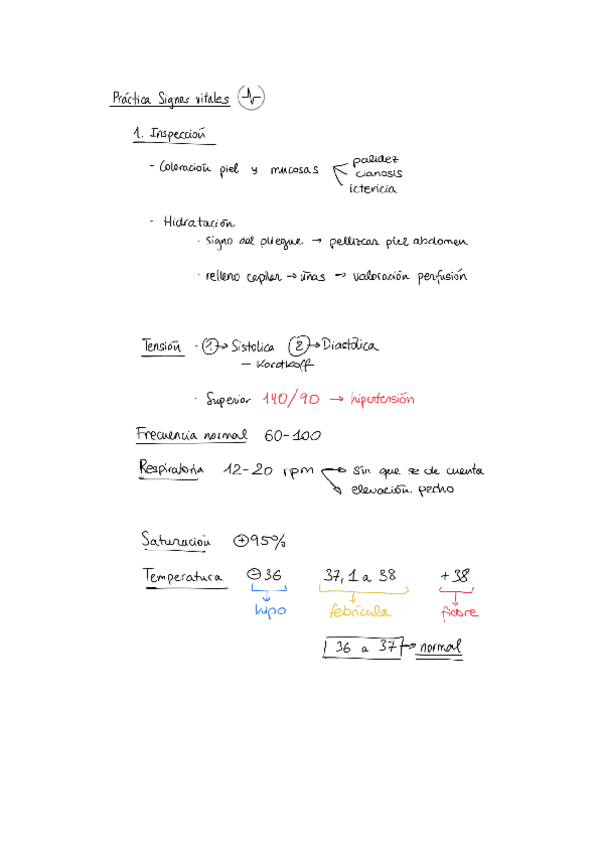 Práctica Signos vitales
1. Inspección
- Coloración piel y mucosas
palidez
cianosis
ictericia
- Hidratación
· signo del pliegue → pellizcar piel abdomen
· relleno capilar → uñas → valoración perfusión
Tensión · ① → Sistolica ② → Diastólica
— Korotkoff
· Superior 140/90 → hipertensión
Frecuencia normal 60-100
Respiratoria 12-20 rpm → sin que se de cuenta
elevación pecho
Saturación ⊕95%
Temperatura ⊖36 37,1 a 38 +38
hipo febrícula fiebre
36 a 37 → normal